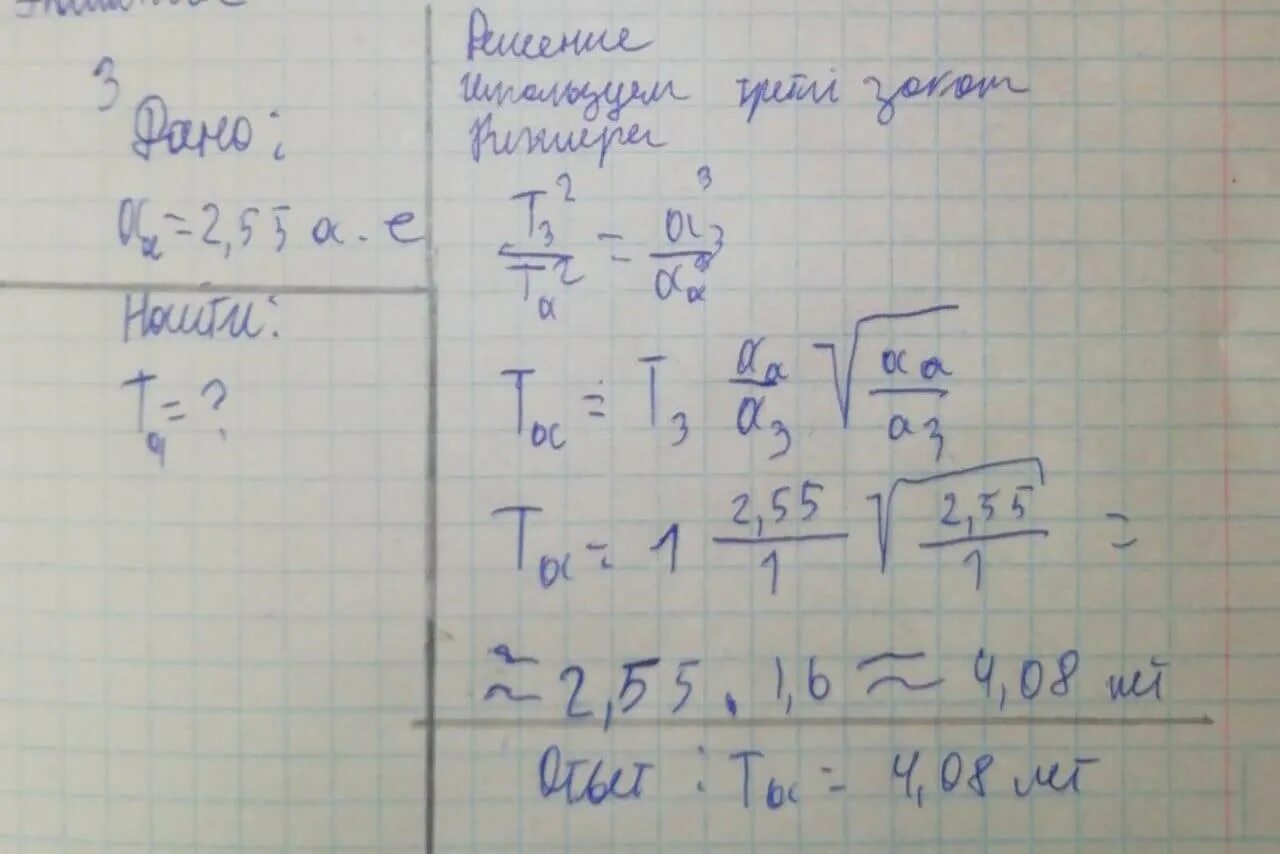 3
Дано:
aₐ = 2,55 а.е
Найти:
Tₐ = ?
Решение
Используем третий закон
Кеплера
T₃² / Tₐ² = a₃³ / aₐ³
Tₐ = T₃ aₐ/a₃ √(aₐ/a₃)
Tₐ = 1 2,55/1 √(2,55/1) =
≈ 2,55 . 1,6 ≈ 4,08 лет
Ответ : Tₐ = 4,08 лет